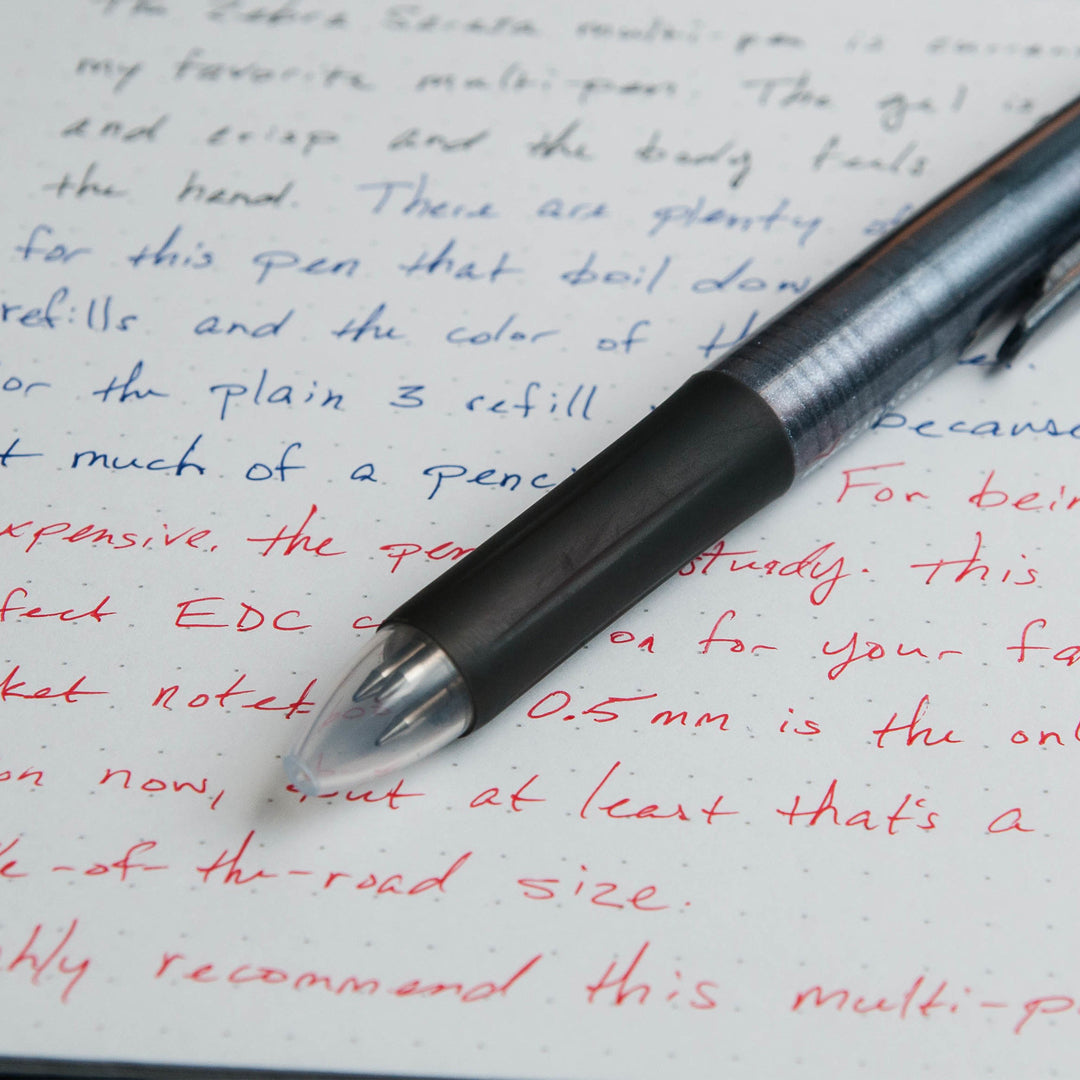 The Zebra Sarasa multi-pen is
my favorite multi-pen. The gel is
and crisp and the body feels
the hand. There are plenty of
for this pen that boil down
refills and the color of
or the plain 3 refill because
t much of a penc
For bein
xpensive, the pen sturdy. This
fect EDC on for your fa
ket noteb 0.5 mm is the onl
on now, but at least that's a
le-of-the-road size.
ghly recommend this multi-p